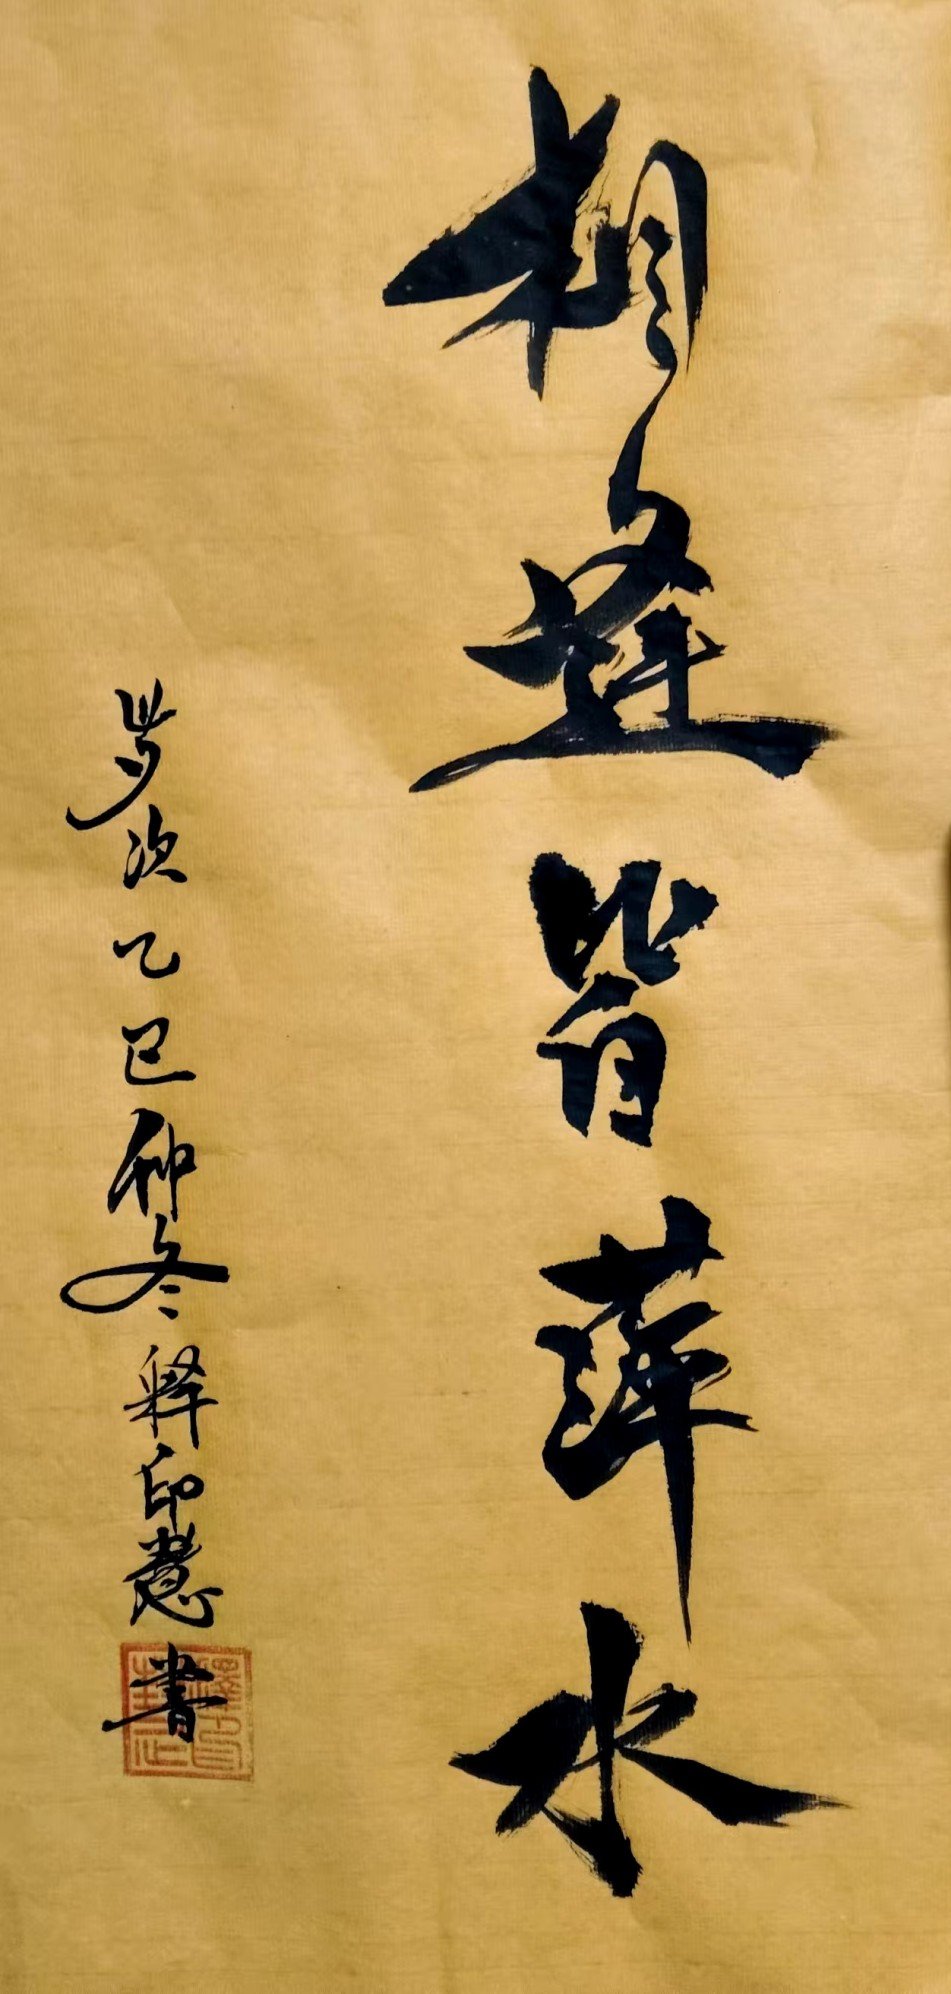 相逢皆萍水
岁次乙巳仲冬释印慧书